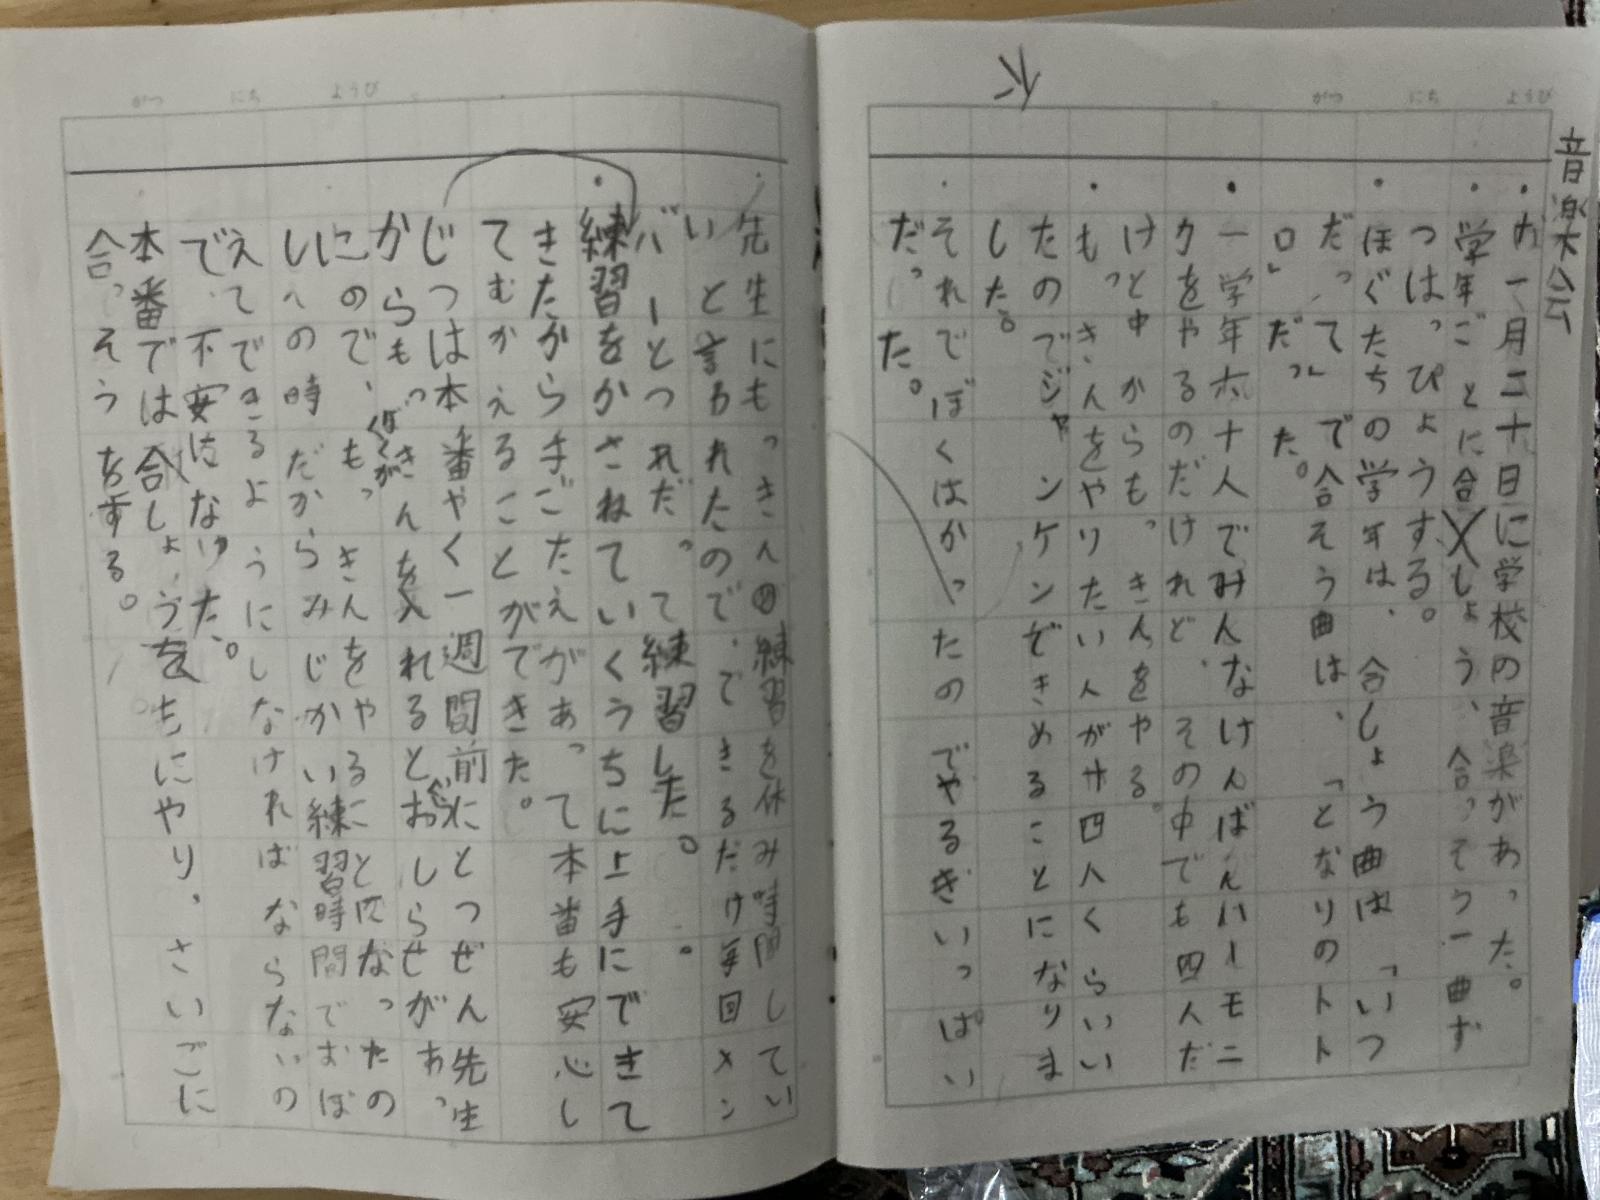 ようび
にち
がつ
音楽会
・十一月二十日に学校の音楽があった。
・学年ごとに合しょう、合っそう一曲ず
つはっぴょうする。
・ぼくたちの学年は、合しょう曲は「いつ
だって」で合そう曲は、「となりのトト
ロ」だった。
・一学年六十人でみんなけんばんハーモニ
カをやるのだけれど、その中でも四人だ
けと中からもっきんをやる。
・もっきんをやりたい人が廿四人くらいい
たのでジャンケンできめることになりま
した。
・それでぼくはかったのでやるきいっぱい
だった。
ようび
にち
がつ
・先生にもっきんの練習を休み時間してい
いと言われたので、できるだけ毎回メン
バーとつれだって練習した。
・練習をかさねていくうちに上手にできて
きたから手ごたえがあって本番も安心し
てむかえることができた。
じつは本番やく一週間前にとつぜん先生
からもっきんを入れるとおしらせがあっ
ぼくが
ぐ
たので、もっきんをやるにと匹なったの
しへの時だからみじかい練習時間でおぼ
えてできるようにしなければならないの
で、不安はなかった。
本番では合しょうをちにやり、さいごに
合っそうをする。